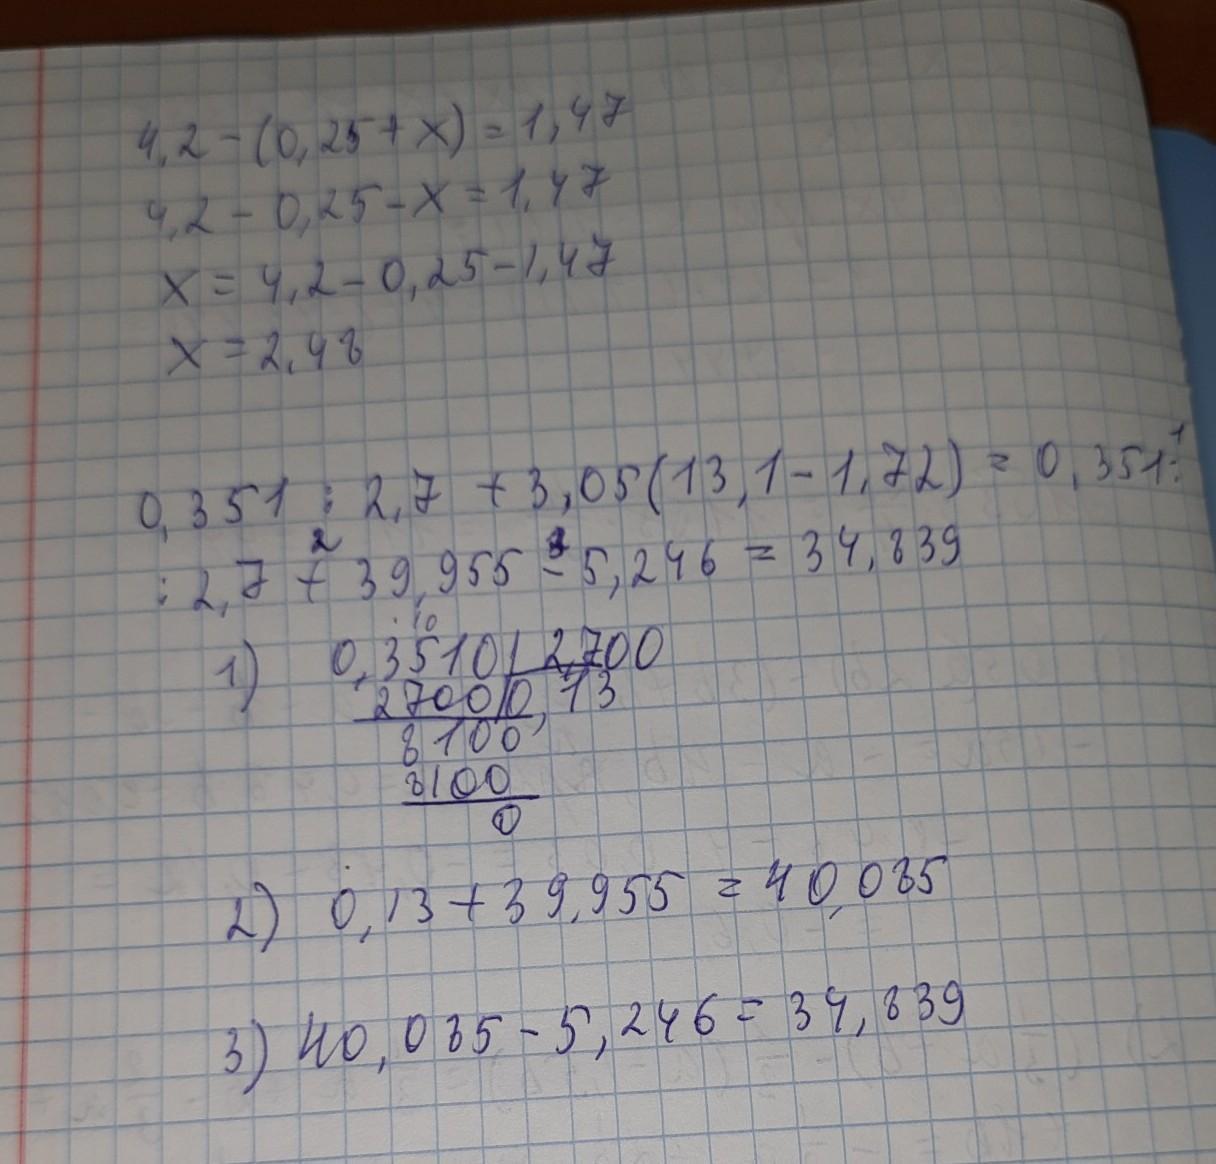 4,2 - (0,25 + x) = 1,47
4,2 - 0,25 - x = 1,47
x = 4,2 - 0,25 - 1,47
x = 2,48
0,351 : 2,7 + 3,05(13,1 - 1,72) = 0,351 :¹
: 2,7 +² 39,955 -³ 5,246 = 34,839
1) 0,3510 | 2,700
2700 | 0,13
8100
8100
0
2) 0,13 + 39,955 = 40,085
3) 40,085 - 5,246 = 34,839